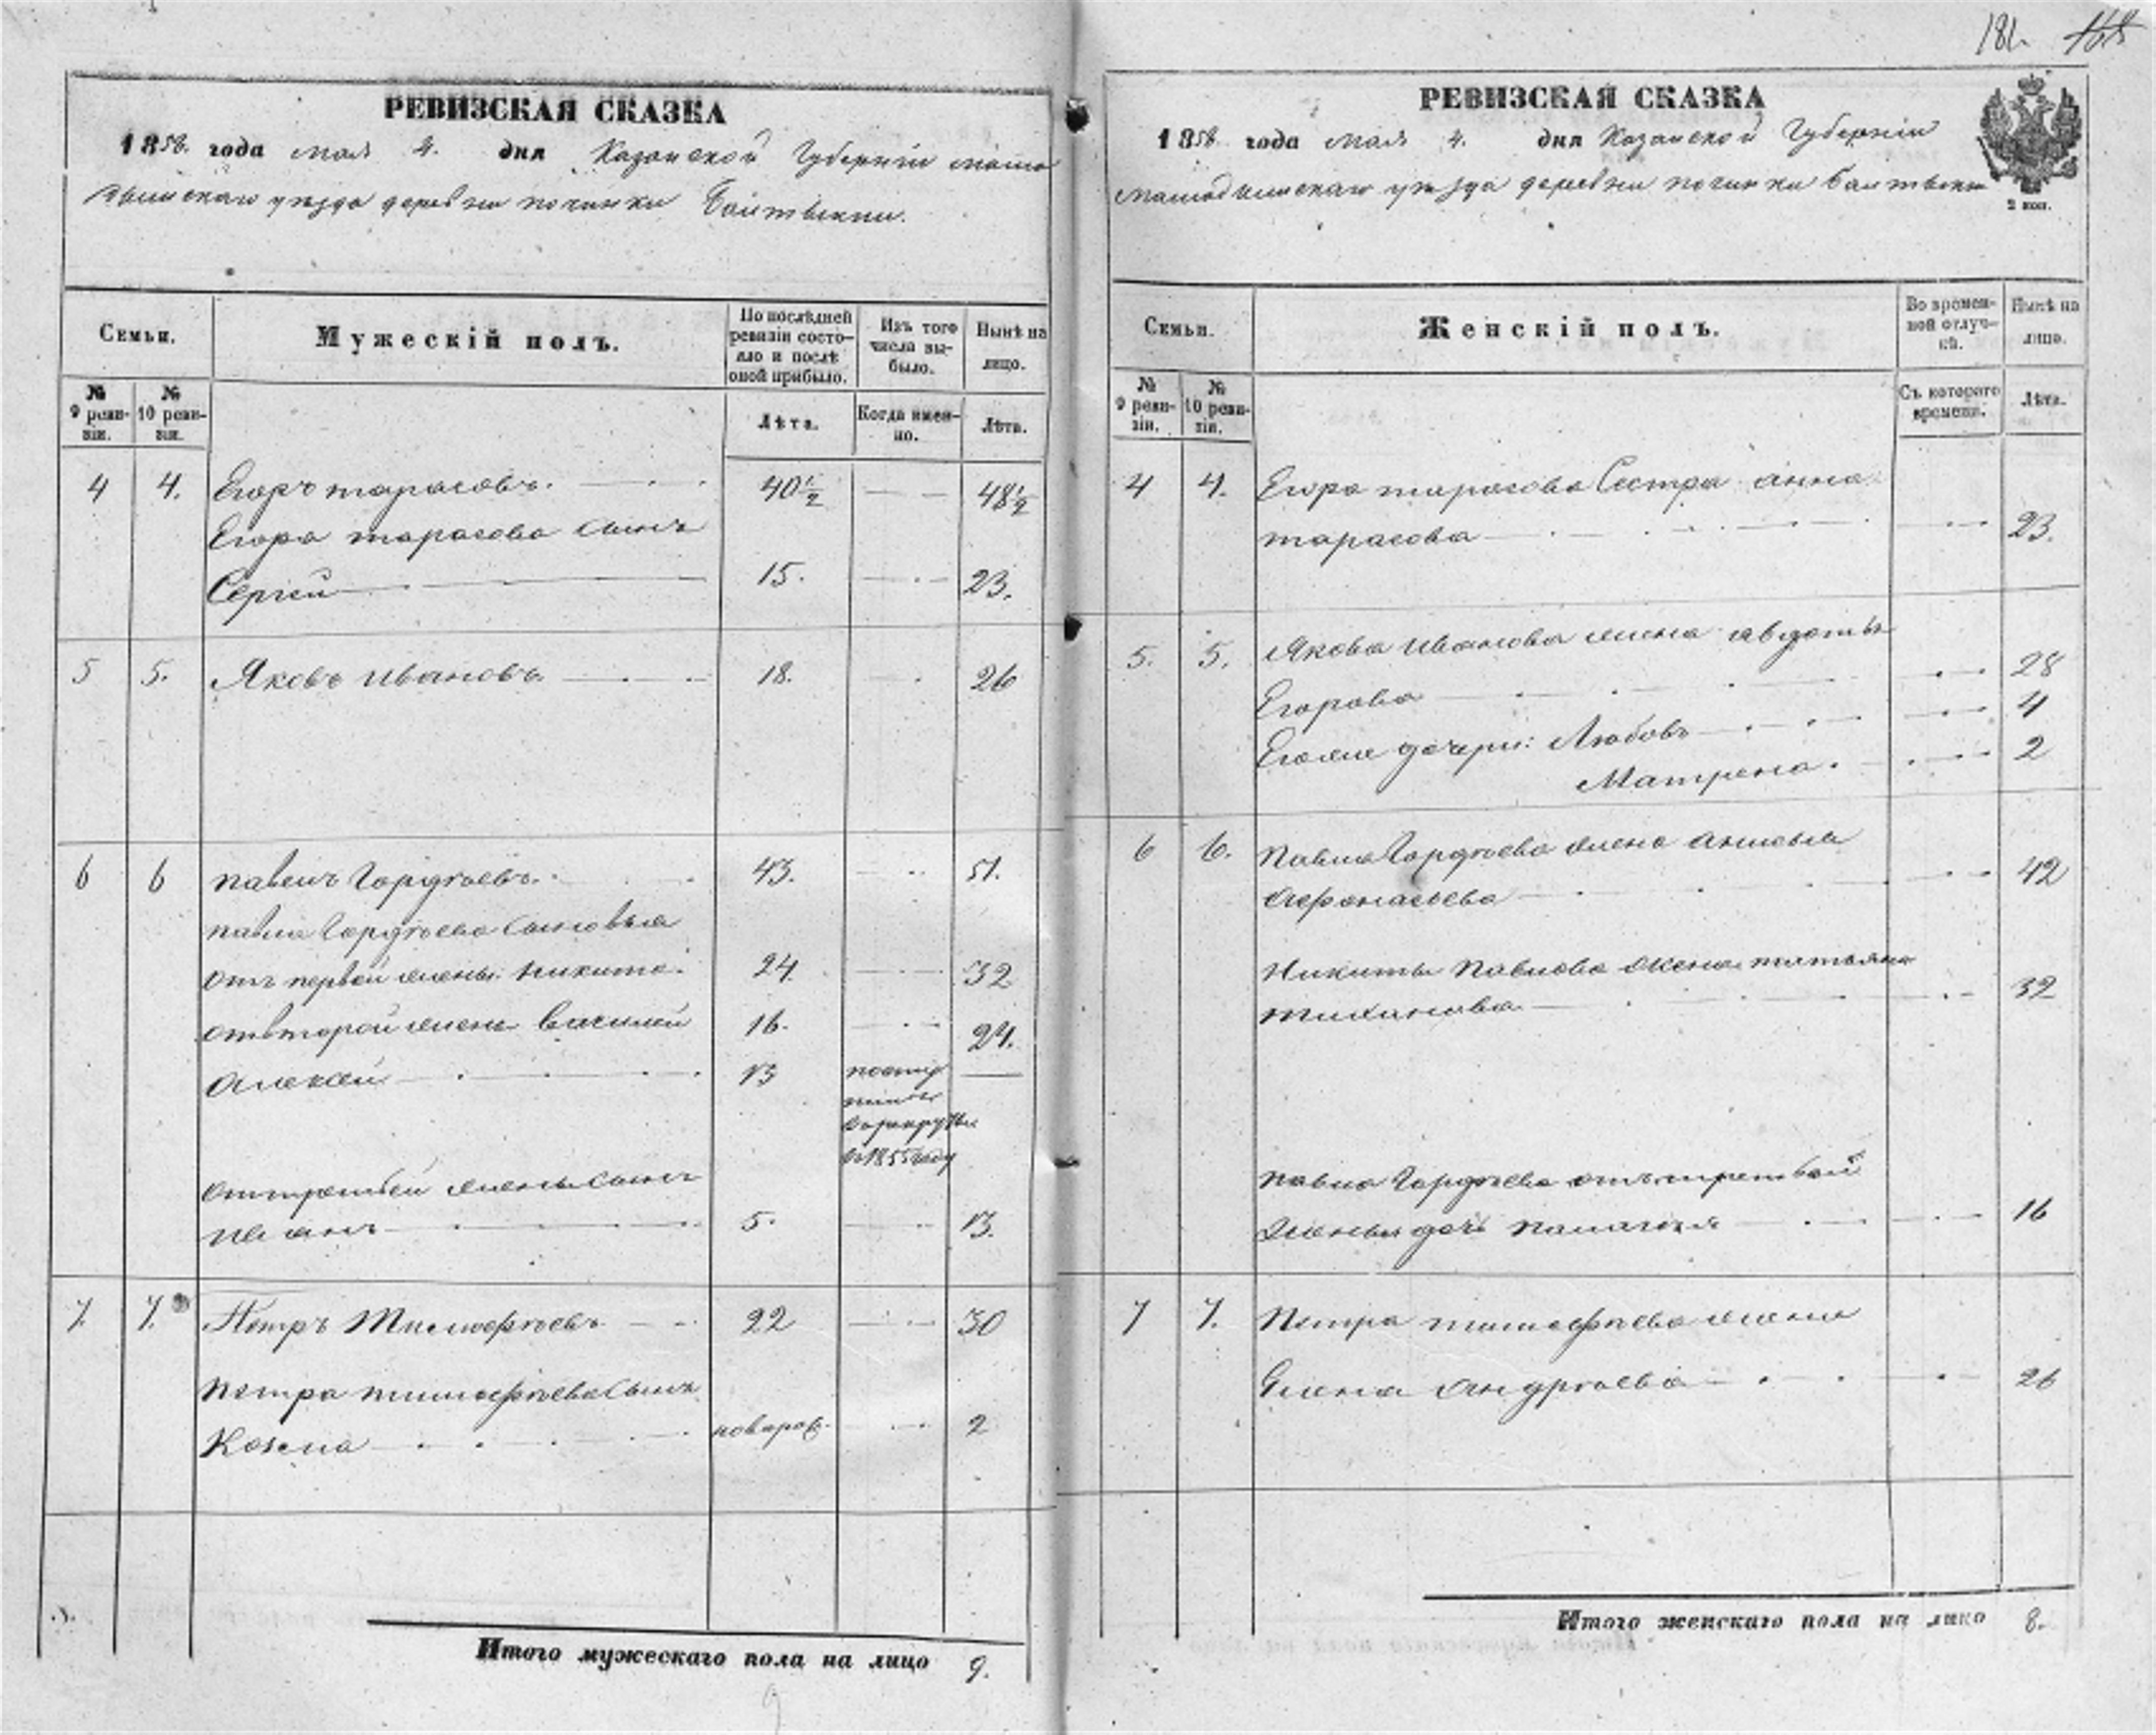 181. 168
РЕВИЗСКАЯ СКАЗКА
1858. года мая 4. дня Казанской Губерніи мама
дышскаго уѣзда деревни починки
Семьи.
Мужескій полъ.
По послѣдней ревизіи состояло и послѣ оной прибыло.
Изъ того числа выбыло.
Нынѣ на лицо.
№ 9 ревизіи.
№ 10 ревизіи.
Лѣта.
Когда именно.
Лѣта.
4 4. Егоръ тарасовъ. 40 1/2 48 1/2
Егора тарасова сынъ
Сергей 15. 23.
5 5. Яковъ Ивановъ 18. 26
6 6 павелъ Гордѣевъ. 43. 51.
павла Гордѣева сыновья
отъ первой жены: никита. 24. 32
отвторой жены василий 16. 24.
алексей 13 поступ
въ рекруты
въ 1855 году
оттретьей жены сынъ
иванъ 5. 13.
7. 7. Петръ Тимофѣевъ 22 30
петра тимофѣева сынъ
Козма новорож. 2
Итого мужескаго пола на лицо 9.
РЕВИЗСКАЯ СКАЗКА
1858 года мая 4. дня Казанской Губерніи
мамадышскаго уѣзда деревни починки
2 коп.
Семьи.
Женскій полъ.
Во временной отлучкѣ.
Нынѣ на лицо.
№ 9 ревизіи.
№ 10 ревизіи.
Съ котораго времени.
Лѣта.
4 4. Егора тарасова Сестра анна
тарасова 23.
5. 5. Якова Иванова жена авдотья
Егорова 28
Егоже дочери: Любовь 4
Матрена. 2
6 6. павла Гордѣева жена
афонасьева 42
Никиты Павлова жена татьяна
тиханова 32
павла Гордѣева отъ третьей
жены дочь палагея 16
7 7. Петра тимофѣева жена
Елена андрѣева 26
Итого женскаго пола на лицо 8.